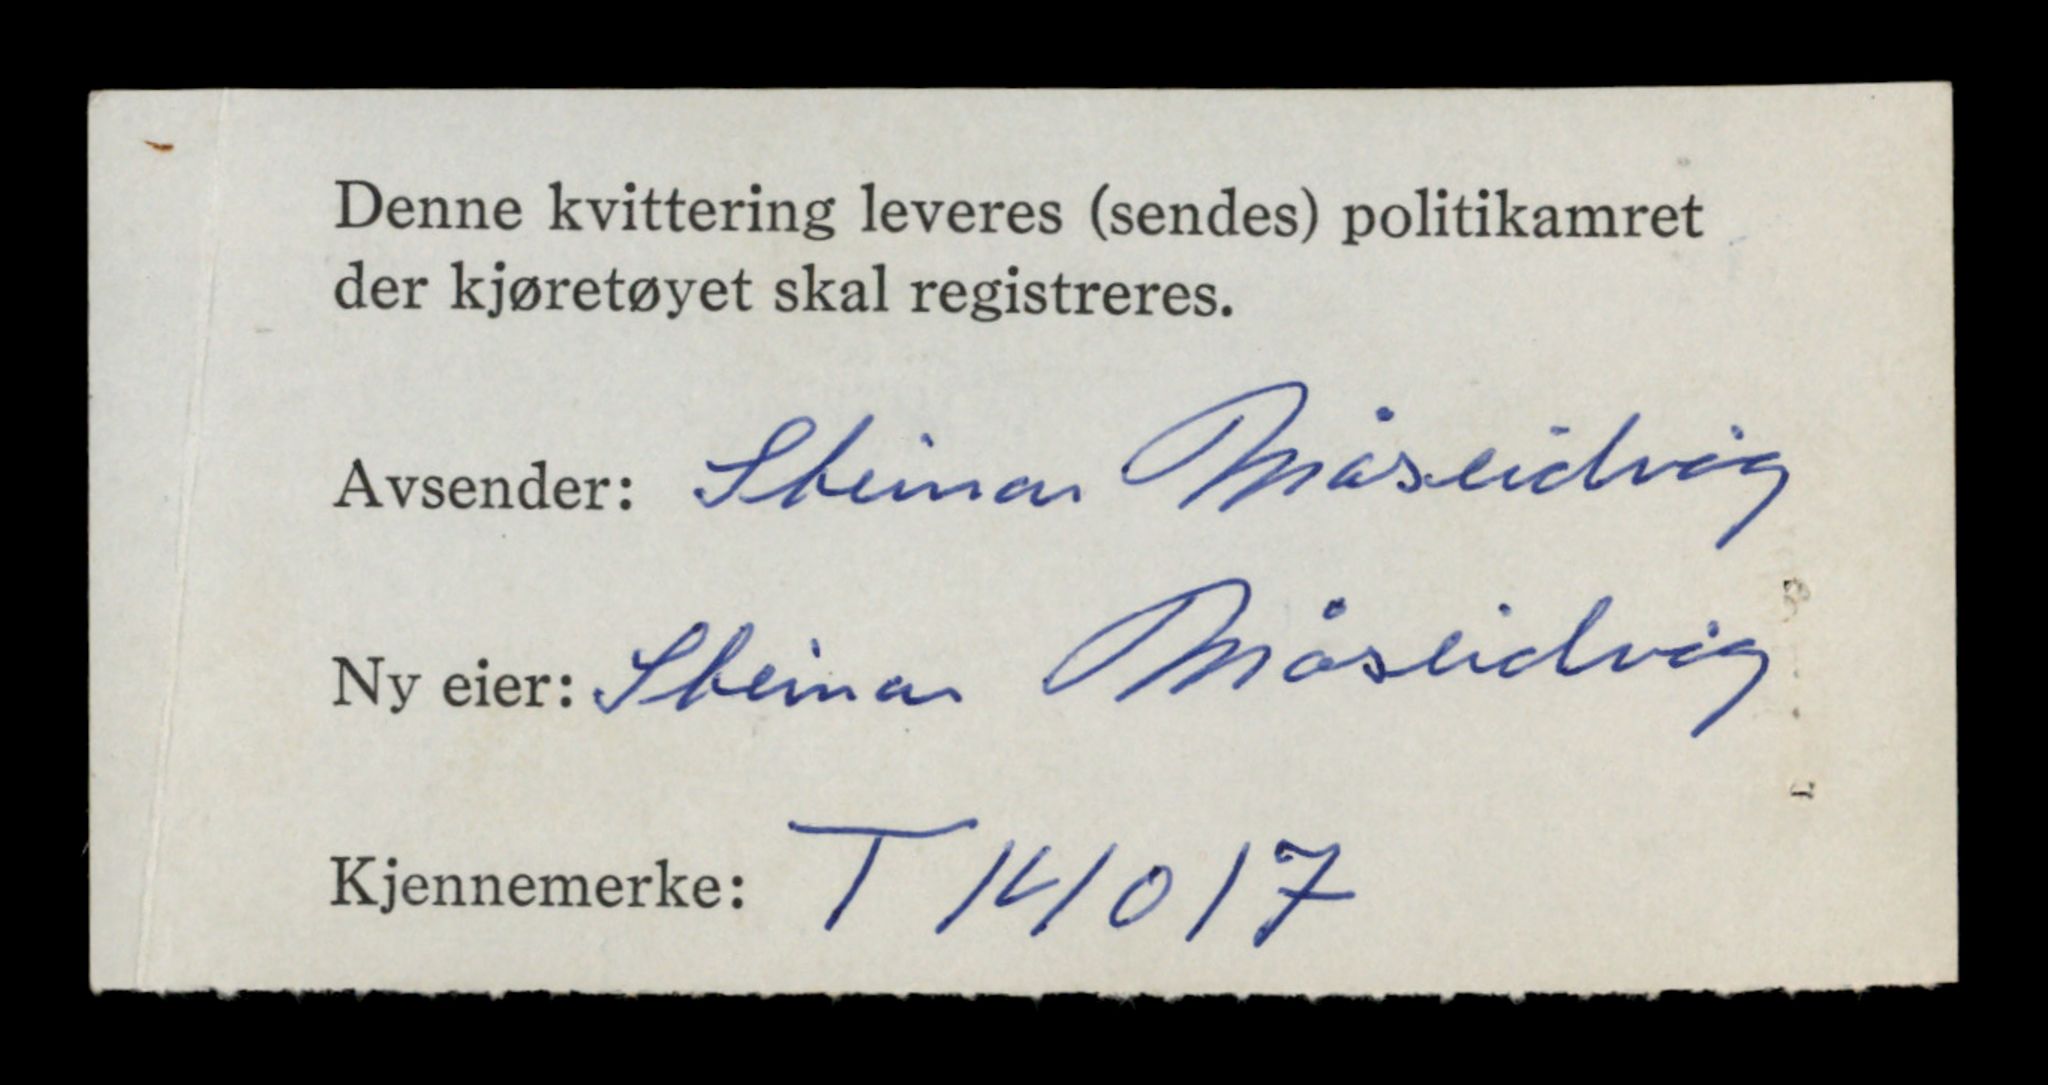 Denne kvittering leveres (sendes) politikamret
der kjøretøyet skal registreres.
Avsender: Steinar Måseidvåg
Ny eier: Steinar Måseidvåg
Kjennemerke: T 14017